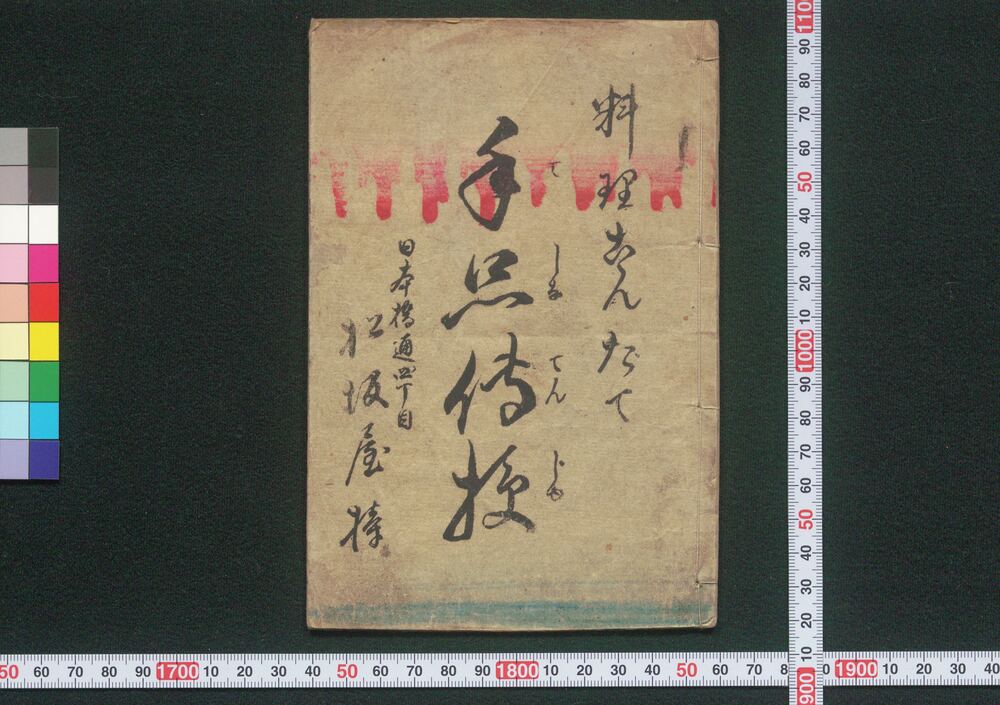 料理こんたて
手品傳授
てしなてんじゆ
日本橋通四丁目
松坂屋
1100
90
80
70
60
50
40
30
20
10
1000
90
80
70
60
50
40
30
20
10
900
50 60 70 80 90 1700 10 20 30 40 50 60 70 80 90 1800 10 20 30 40 50 60 70 80 0 1900 10 20 30 40